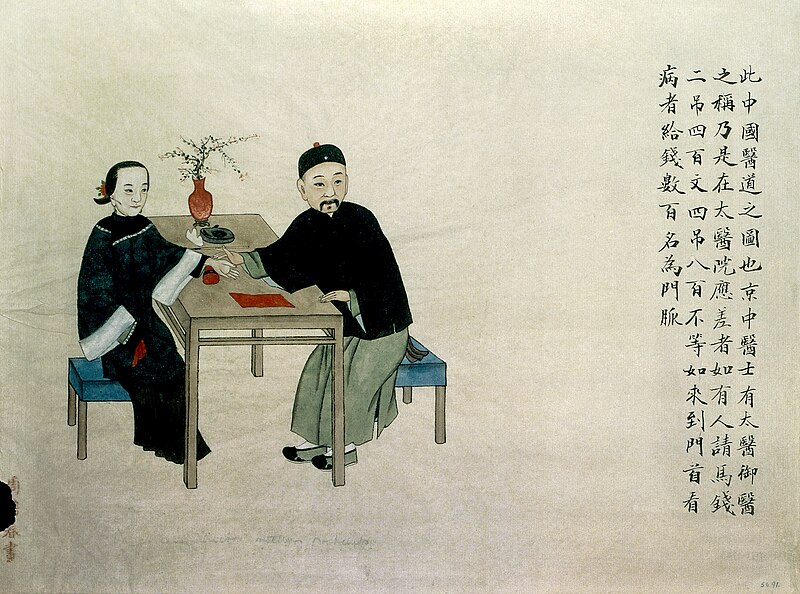 此中國醫道之圖也京中醫士有太醫御醫
之稱乃是在太醫院應差者如有人請馬錢
二吊四百文四吊八百不等如來到門首看
病者給錢數百名為門脈
周
春畫